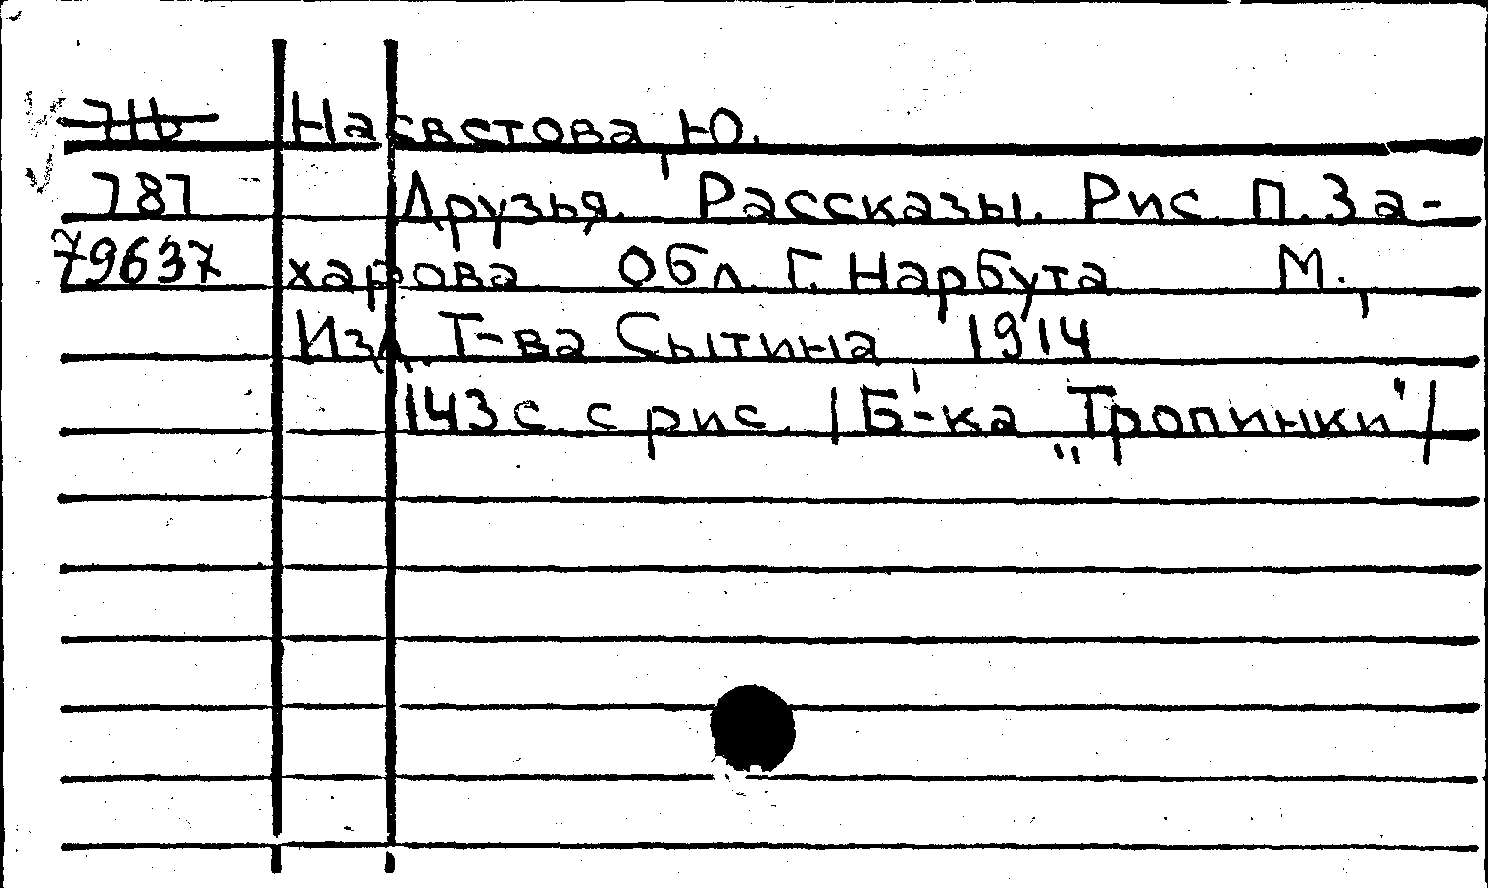 Насвстова, Ю.
787 Друзья. Рассказы. Рис. П. За-
79637 харова. Обл. Г. Нарбута М.,
Изд. Т-ва Сытина, 1914
143 с. с рис. /Б-ка „Тропинки"/